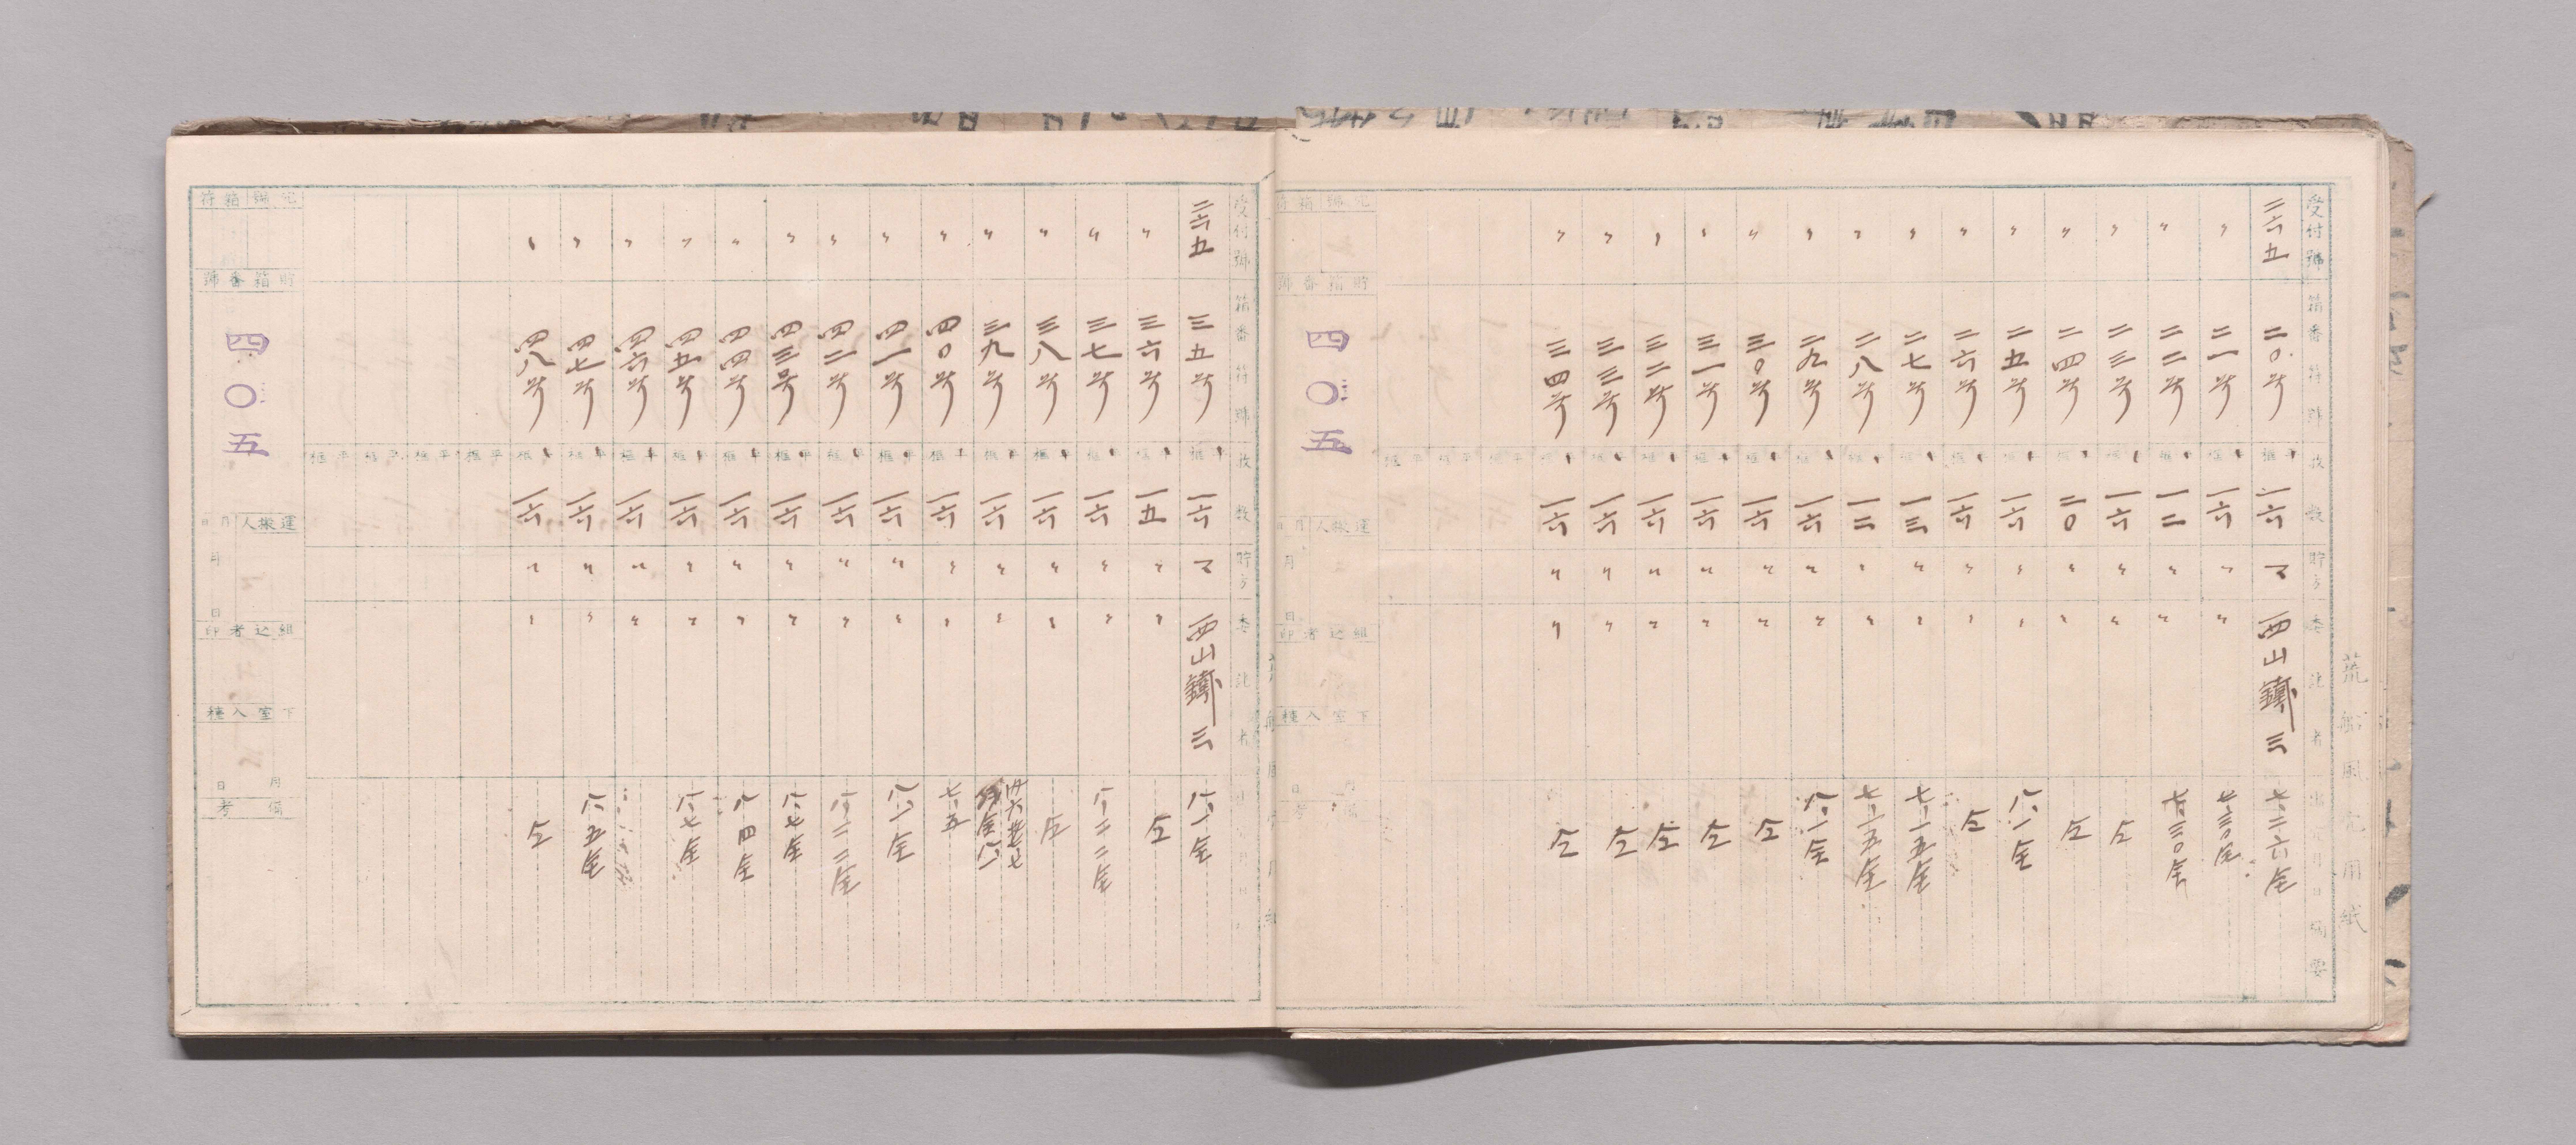 荒船風穴用紙
受付號 箱番符號 枚數 貯方 委託者 出月日摘要
二六五 二〇号 一六 マ 西山鐵三 七、二六全
〃 二一号 一六 〃 〃 七、三〇全
〃 二二号 一二 〃 〃 七、三〇全
〃 二三号 一六 〃 〃 仝
〃 二四号 二〇 〃 〃 仝
〃 二五号 一六 〃 〃 八、一全
〃 二六号 一六 〃 〃 仝
〃 二七号 一三 〃 〃 七、一五全
〃 二八号 一二 〃 〃 七、一五全
〃 二九号 一六 〃 〃 八、一全
〃 三〇号 一六 〃 〃 仝
〃 三一号 一六 〃 〃 仝
〃 三二号 一六 〃 〃 仝
〃 三三号 一六 〃 〃 仝
〃 三四号 一六 〃 〃 仝
貯箱番號
四〇五
運搬人 月日
月 日
組込者印
下室入積
月 日
備考
受付號 箱番符號 枚數 貯方 委託者
二六五 三五号 一六 マ 西山鐵三 八、一全
〃 三六号 一五 〃 〃 仝
〃 三七号 一六 〃 〃 八、二二全
〃 三八号 一六 〃 〃 仝
〃 三九号 一六 〃 〃
〃 四〇号 一六 〃 〃 七、五
〃 四一号 一六 〃 〃 八、一全
〃 四二号 一六 〃 〃 八、二二全
〃 四三号 一六 〃 〃 八、七全
〃 四四号 一六 〃 〃 八、四全
〃 四五号 一六 〃 〃 八、七全
〃 四六号 一六 〃 〃
〃 四七号 一六 〃 〃 八、五全
〃 四八号 一六 〃 〃 仝
貯箱番號
四〇五
運搬人 月日
月 日
組込者印
下室入積
月 日
備考